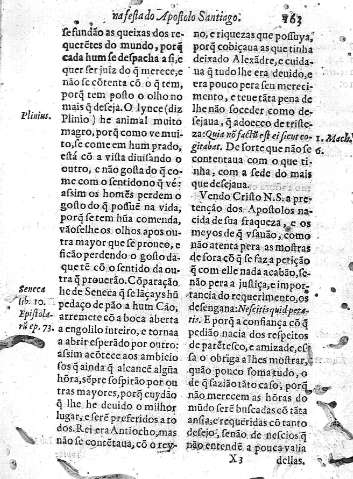 na festa do Apostolo Santiago. 163
se fundão as queixas dos re-
querẽtes do mundo, porq̃
cada hum se despacha a si, e
quer ser juiz do q̃ merece, e
não se cõtenta cõ o q̃ tem,
porq̃ tem posto o olho no
mais q̃ deseja. O lynce (diz
Plinio) he animal muito
magro, porq̃ como ve mui-
to, se come em hum prado,
està cõ a vista diuisando o
outro, e não gosta do q̃ co-
me com o sentido no q̃ vè:
assim os homẽs perdem o
gosto do q̃ possuẽ na vida,
porq̃ se tem hũa comenda,
vãoselhe os olhos apos ou-
tra mayor que se proueo, e
ficão perdendo o gosto da-
que tẽ cõ o sentido da ou-
tra q̃ prouerão. Cõparação
he de Seneca q̃ se lãçays hũ
pedaço de pão a hum Cão,
arremete cõ a boca aberta
a engolilo inteiro, e tornaa
a abrir esperãdo por outro:
assim acõtece aos ambicio
sos q̃ ainda q̃ alcancẽ algũa
hõra, sẽpre sospirão por ou
tras mayores, porq̃ cuydão
q̃ lhe he deuido o milhor
lugar, e serẽ preferidos a to
dos. Rei era Antiocho, mas
não se contẽtaua, cõ o rey-
Plinius.
Seneca
lib. 10.
Epistola-
rũ ep. 73.
no, e riquezas que possuya,
porq̃ cobiçaua as que tinha
deixado Alexãdre, e cuida-
ua q̃ tudo lhe era deuido, e
era pouco pera seu mereci-
mento, e teue tãta pena de
lhe não soceder como de-
sejaua, q̃ adoeceo de triste-
za: Quia nõ factũ est ei sicut co-
gitabat. De sorte que não se
contentaua com o que ti-
nha, com a sede do mais
que desejaua.
Vendo Cristo N. S. a pre-
tenção dos Apostolos na-
cida de sua fraqueza, e os
meyos de q̃ vsauão, como
não atenta pera as mostras
de fora cõ q̃ se faz a petição
q̃ com elle nada acabão, se-
não pera a justiça, e impor-
tancia do requerimento, os
desengana: Nescitis quid peta-
tis. E porq̃ a confiança cõ q̃
pedião nacia dos respeitos
de parẽtesco, e amizade, es-
sa o obriga a lhes mostrar,
quão pouco soma tudo, o
de q̃ fazião tãto caso, porq̃
não merecem as hõras do
mũdo serẽ buscadas cõ tãta
ansia, e requeridas cõ tanto
desejo, senão de nescios q̃
não entendẽ a pouca valia
1. Mach.
6.
X3 dellas.